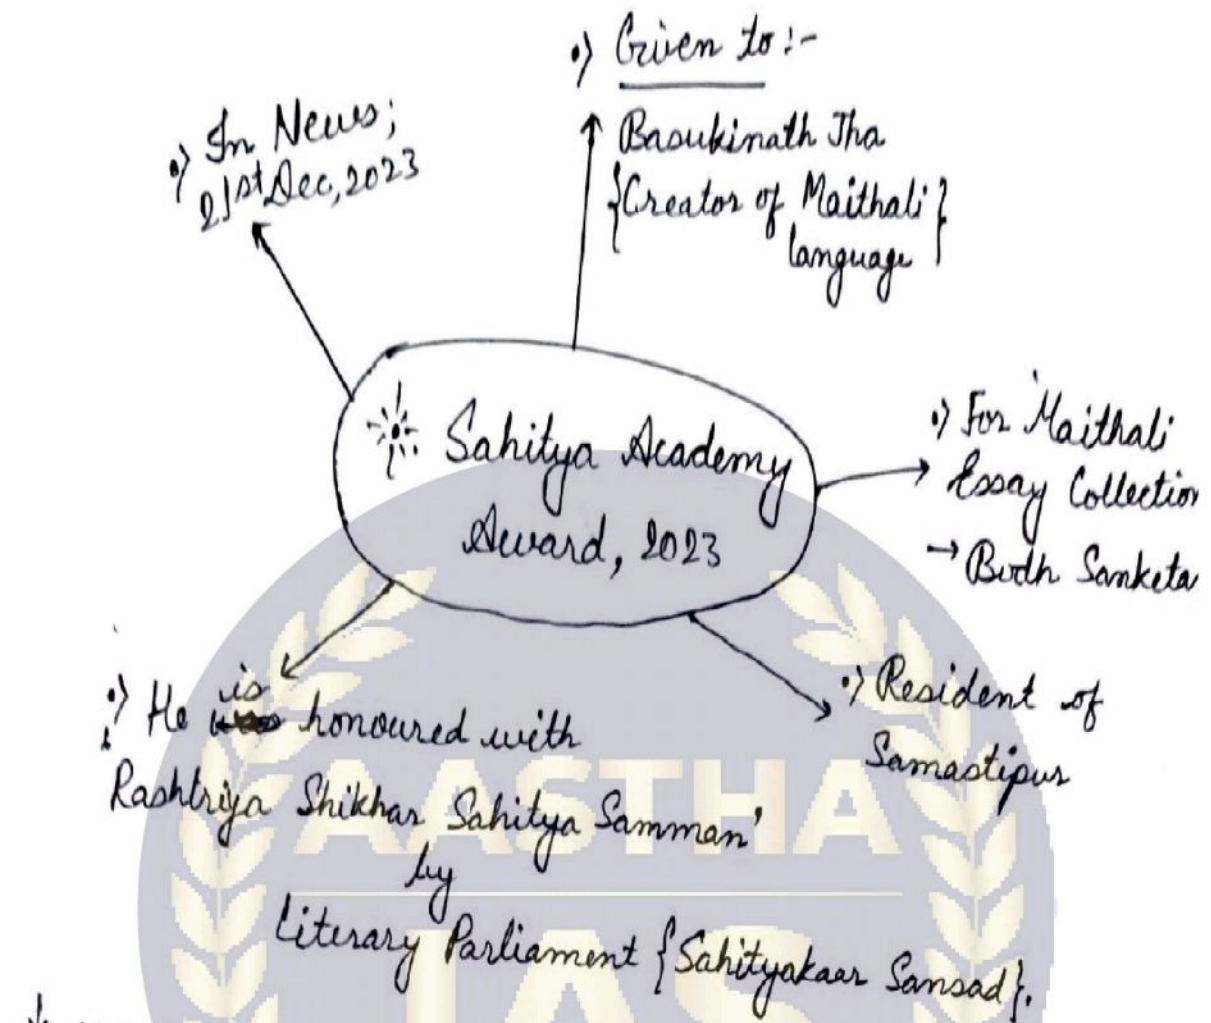 •) Given to :-
Basukinath Jha
{Creator of Maithali}
language
•) In News;
21st Dec, 2023
Sahitya Academy
Award, 2023
•) For Maithali
Essay Collection
→ Bodh Sanketa
•) Resident of
Samastipur
•) He is honoured with
Rashtriya Shikhar Sahitya Samman'
by
Literary Parliament {Sahityakaar Sansad}.
AASTHA
IAS